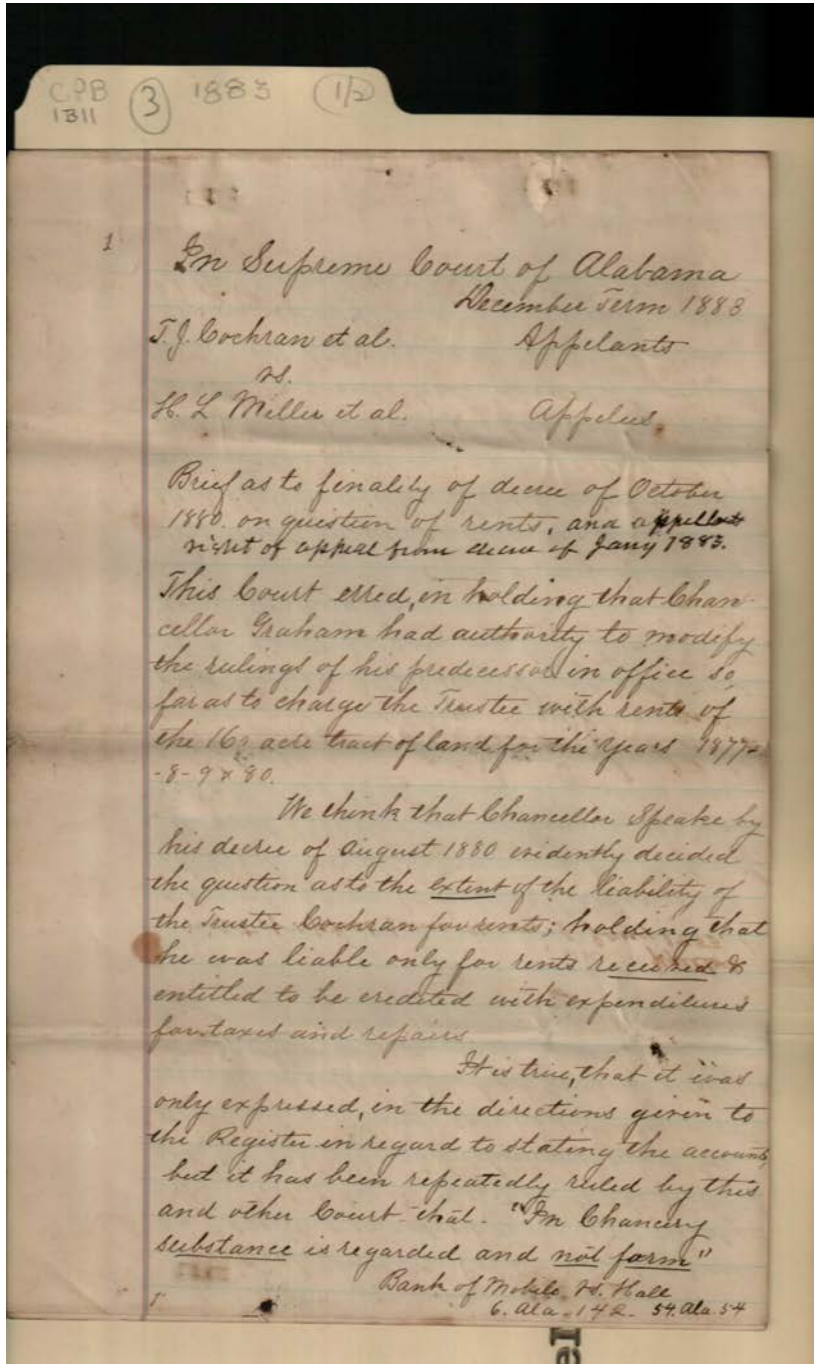 CPB 3 1883 (1/2)
1311
1
In Supreme Court of Alabama
December Term 1883
T. J. Cochran et al. Appelants
vs.
H. L Miller et al. Appelees
Brief as to finality of decree of October
1880. on question of rents, and appellants
right of appeal from decree of Jany 1883.
This Court erred, in holding that Chan-
cellor Graham had authority to modify
the rulings of his predecessor in office so
far as to charge the Trustee with rents of
the 160 acre tract of land for the years 1877-
-8-9 & 80.
We think that Chancellor Speake by
his decree of August 1880 evidently decided
the question as to the extent of the liability of
the Trustee Cochran for rents; holding that
he was liable only for rents received &
entitled to be credited with expenditures
for taxes and repairs
It is true, that it was
only expressed, in the directions given to
the Register in regard to stating the accounts,
but it has been repeatedly ruled by this
and other Court that. "In Chancery
substance is regarded and not form"
Bank of Mobile vs. Hall
6. Ala. 142. 54. Ala. 54
1